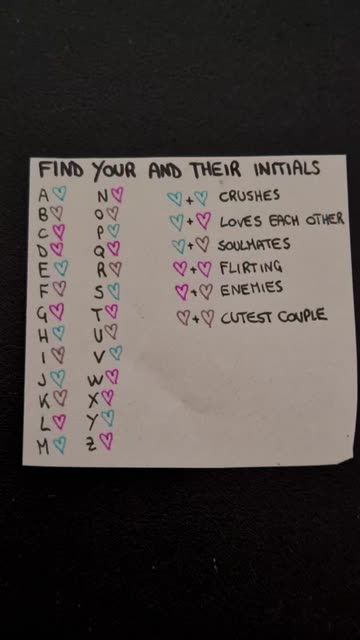 FIND YOUR AND THEIR INITIALS
A
B
C
D
E
F
G
H
I
J
K
L
M
N
O
P
Q
R
S
T
U
V
W
X
Y
Z
+ CRUSHES
+ LOVES EACH OTHER
+ SOULMATES
+ FLIRTING
+ ENEMIES
+ CUTEST COUPLE